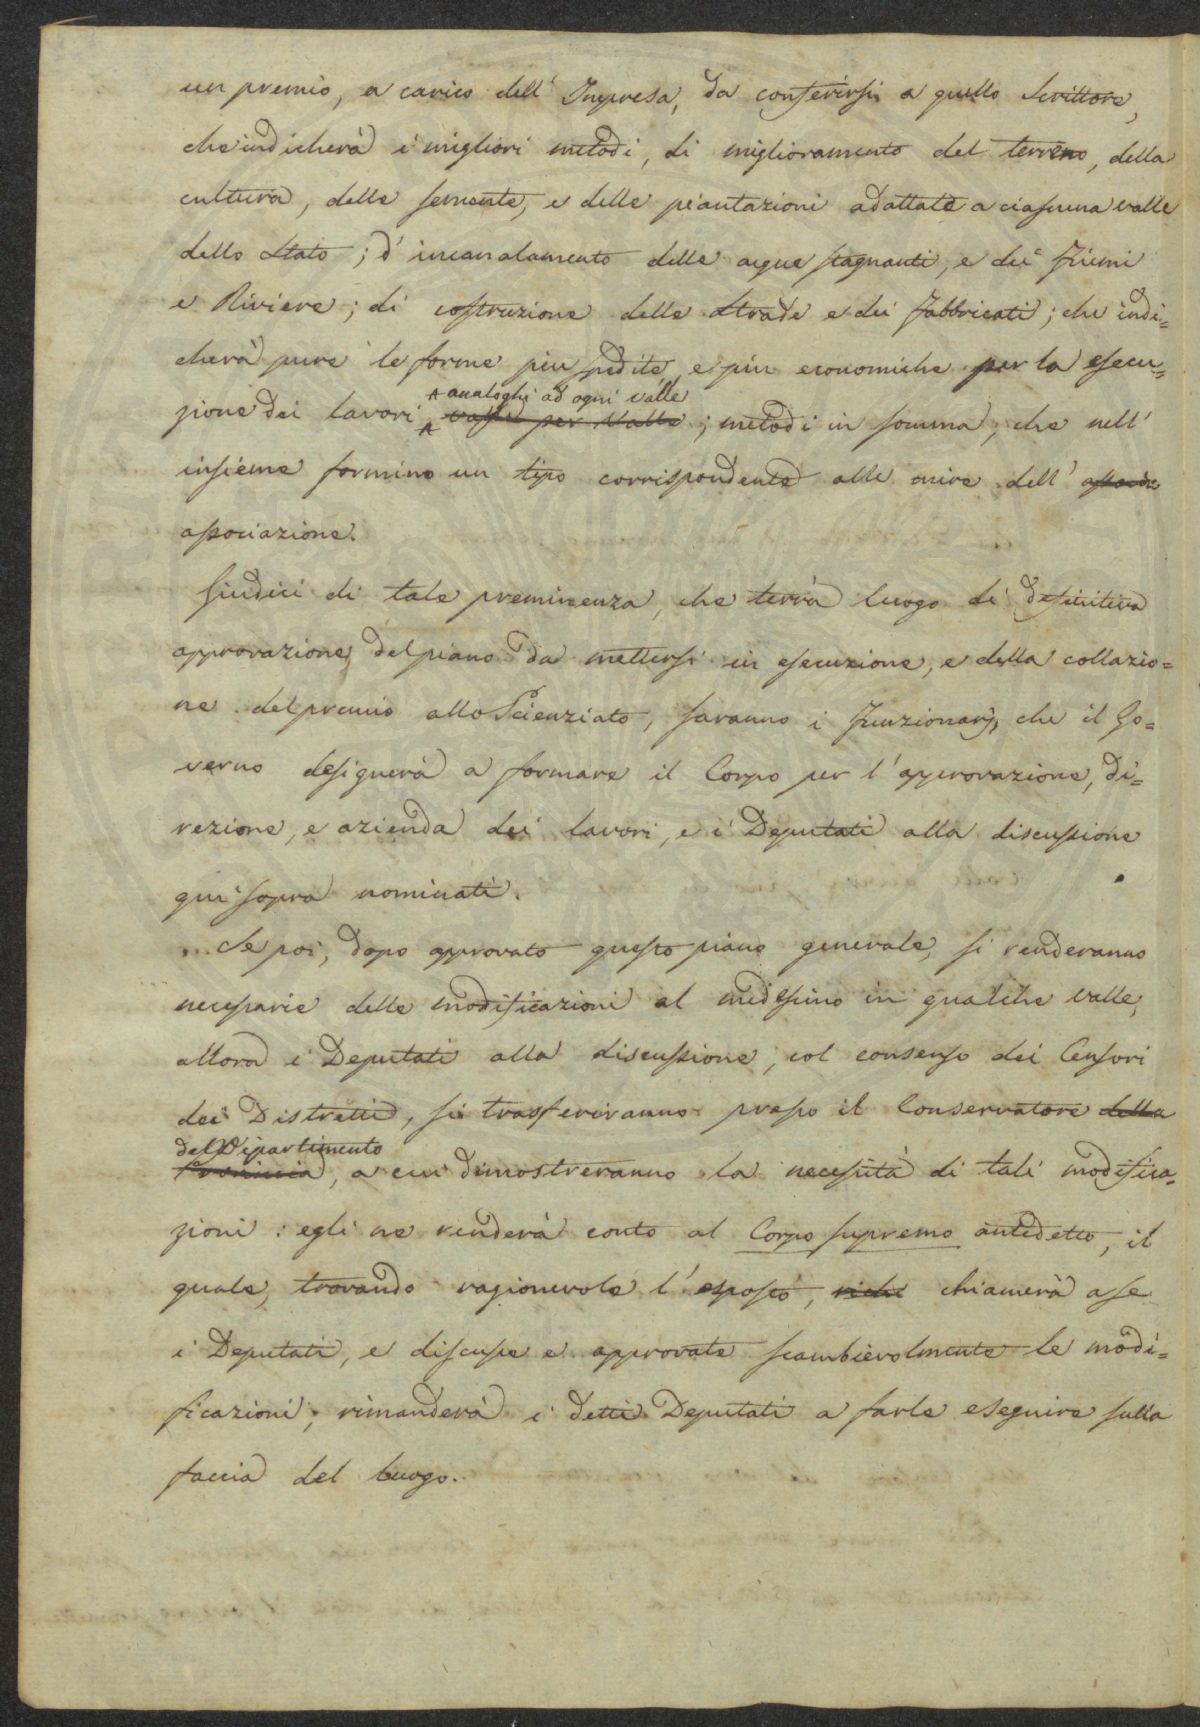 un premio, a carico dell' Impresa, da conferirsi a quello Scrittore,
che indicherà i migliori metodi, di miglioramento del terreno, della
cultura, delle semente, e delle piantazioni adattate a ciascuna valle
dello Stato; d' incanalamento delle acque stagnanti, e dei Fiumi
e Riviere; di costruzione delle Strade e dei fabbricati; che indi=
cherà pure le forme più spedite, e più economiche per la esecu=
zione dei lavori
analoghi ad ogni valle
valle per Valle; metodi in somma, che nell'
insieme formino un tipo corrispondente alle mire dell'
associazione.
Giudici di tale preminenza, che terrà luogo di definitiva
approvazione del piano da mettersi in esecuzione, e della collazio=
ne del premio allo Scienziato, saranno i Funzionarj, che il Go=
verno designerà a formare il Corpo per l'approvazione, di=
rezione, e azienda dei lavori, e i Deputati alla discussione
qui sopra nominati.
Se poi, dopo approvato questo piano generale, si renderanno
necessarie delle modificazioni al medesimo in qualche valle,
allora i Deputati alla discussione, col consenso dei Censori
dei Distretti, si trasferiranno presso il Conservatore della
del Dipartimento
Provincia, a cui dimostreranno la necessità di tali modifica=
zioni: egli ne renderà conto al Corpo supremo antedetto, il
quale, trovando ragionevole l'esposto, chiamerà a se
i Deputati, e discusse e approvate scambievolmente le modi=
ficazioni, rimanderà i detti Deputati a farle eseguire sulla
faccia del luogo.